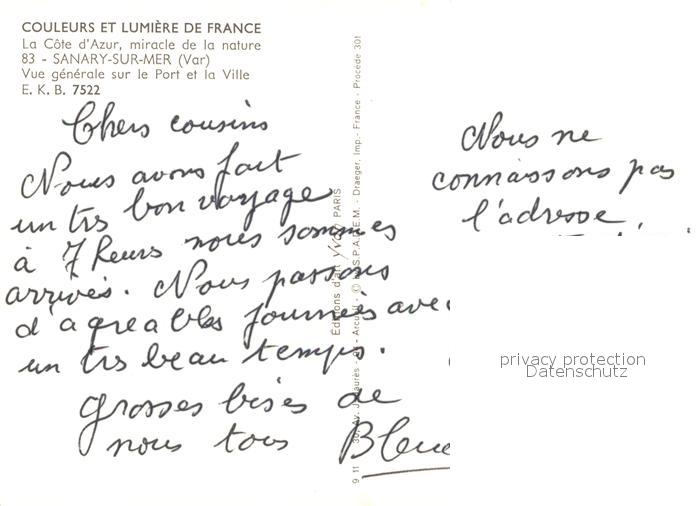 COULEURS ET LUMIÈRE DE FRANCE
La Côte d'Azur, miracle de la nature
83 - SANARY-SUR-MER (Var)
Vue générale sur le Port et la Ville
E. K. B. 7522
Chers cousins
Nous avons fait
un trs bon voyage
à 7 heurs nous sommes
arrivés. Nous passons
d'agreables journées avec
un trs beau temps.
grosses bises de
nous tous
Nous ne
connaissons pas
l'adresse
Editions d'art Yvon PARIS
Draeger, Imp. - France - Procédé 301
privacy protection
Datenschutz